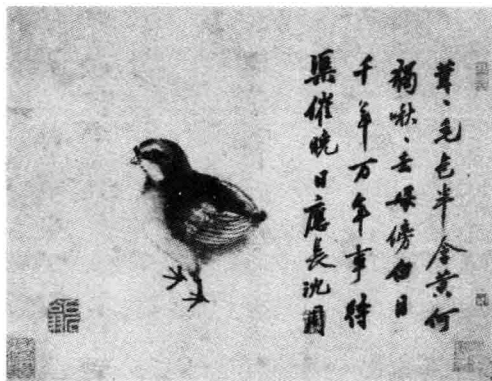 茸、毛色半含黄何
獨啾、去母傍白日
千年万年事待
渠催曉日應長沈周